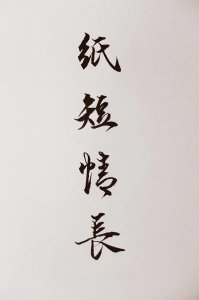 紙短情長